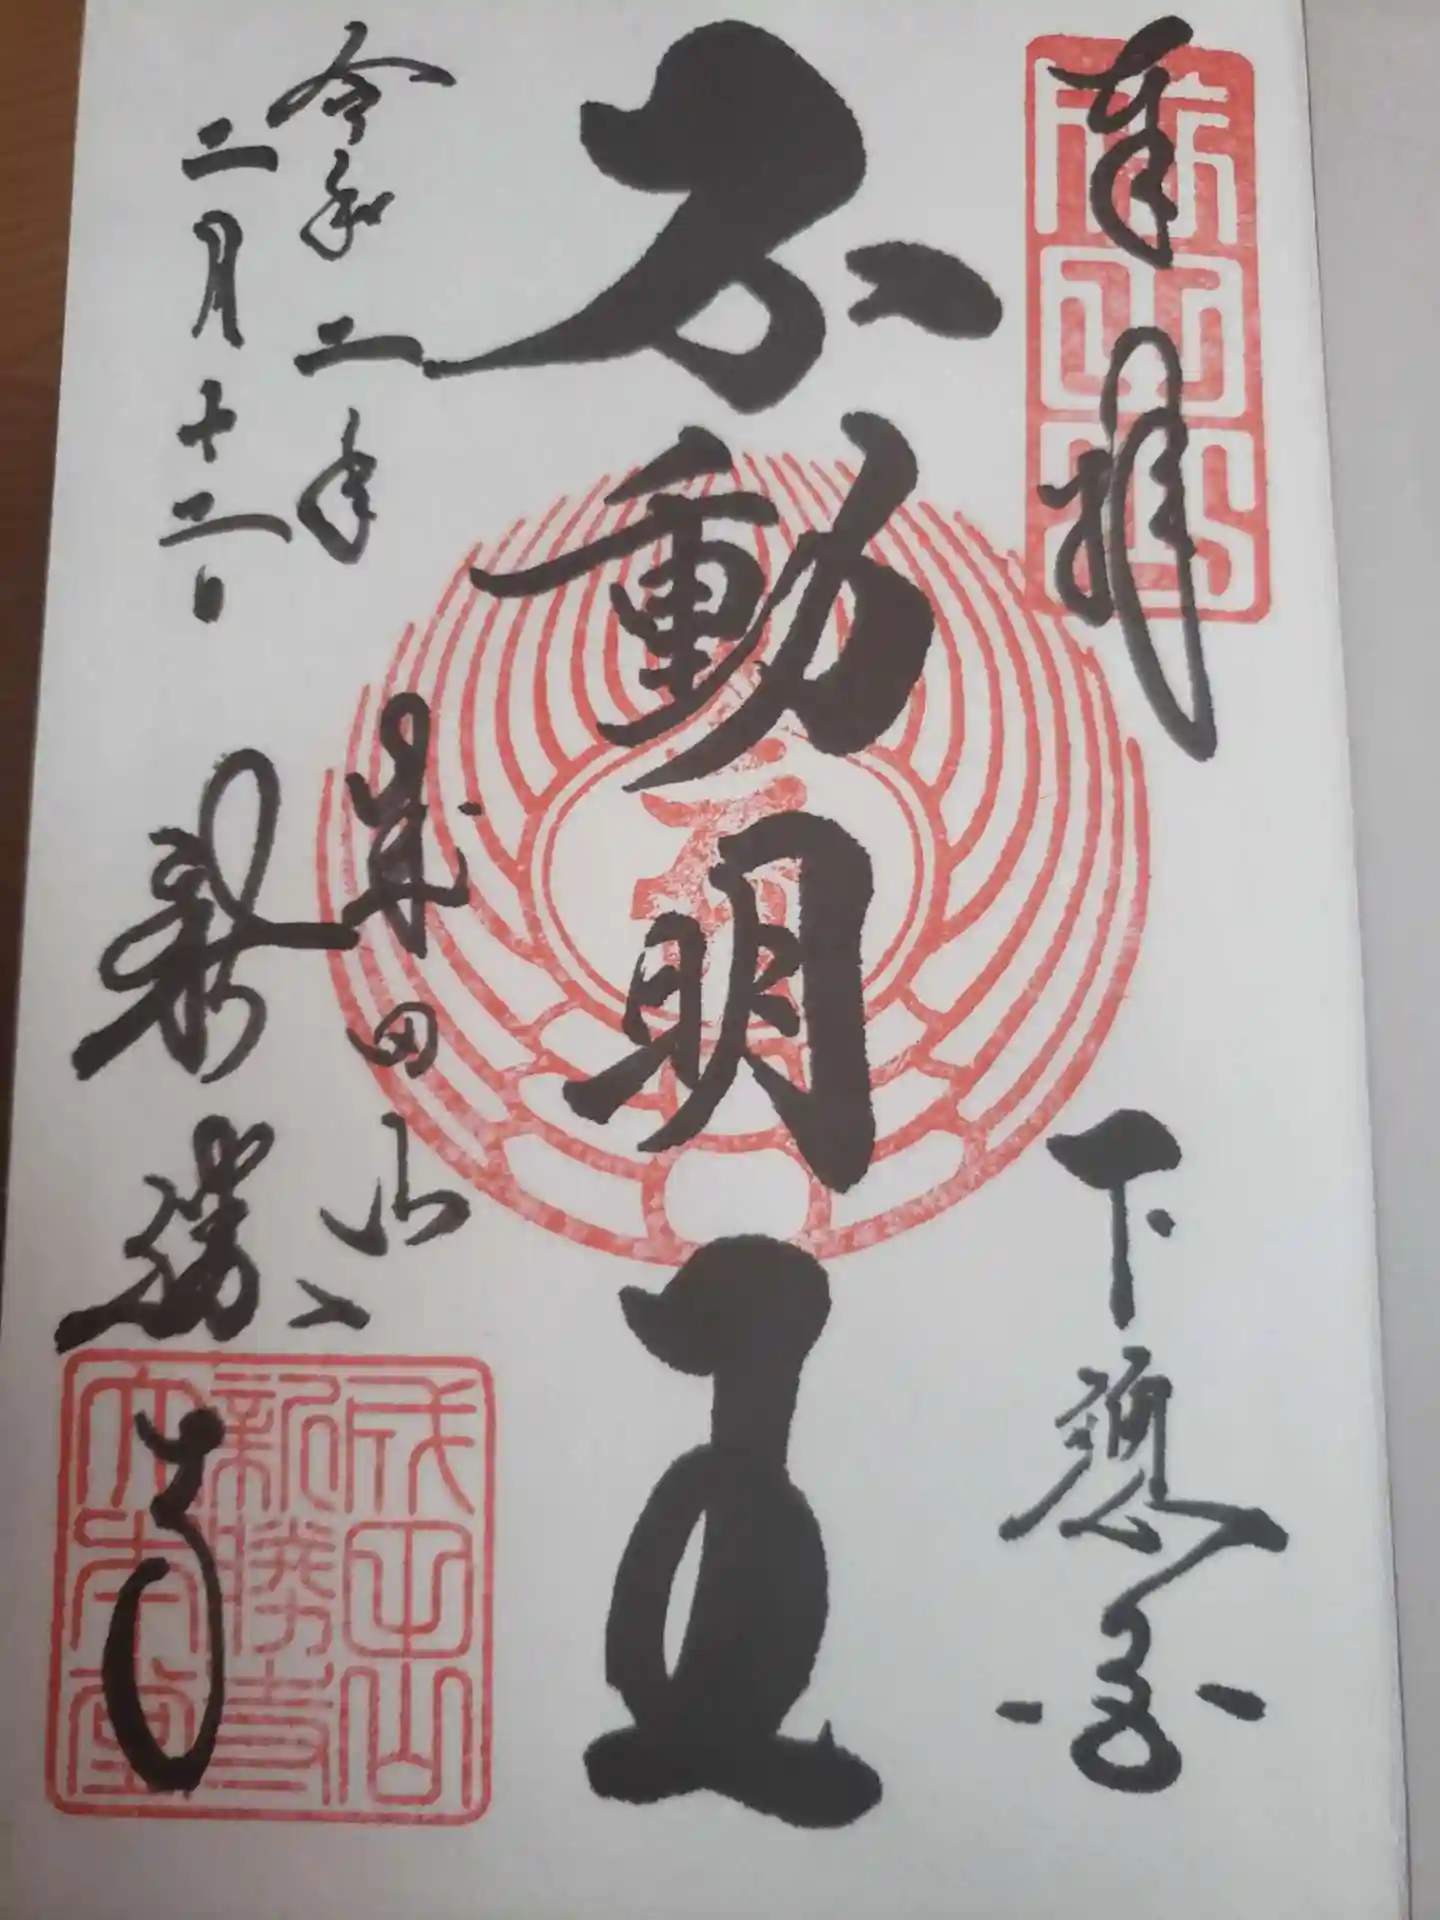 奉拝
下總國
不動明王
令和二年
二月十二日
成田山
新勝寺
成田山
新勝寺
大本堂